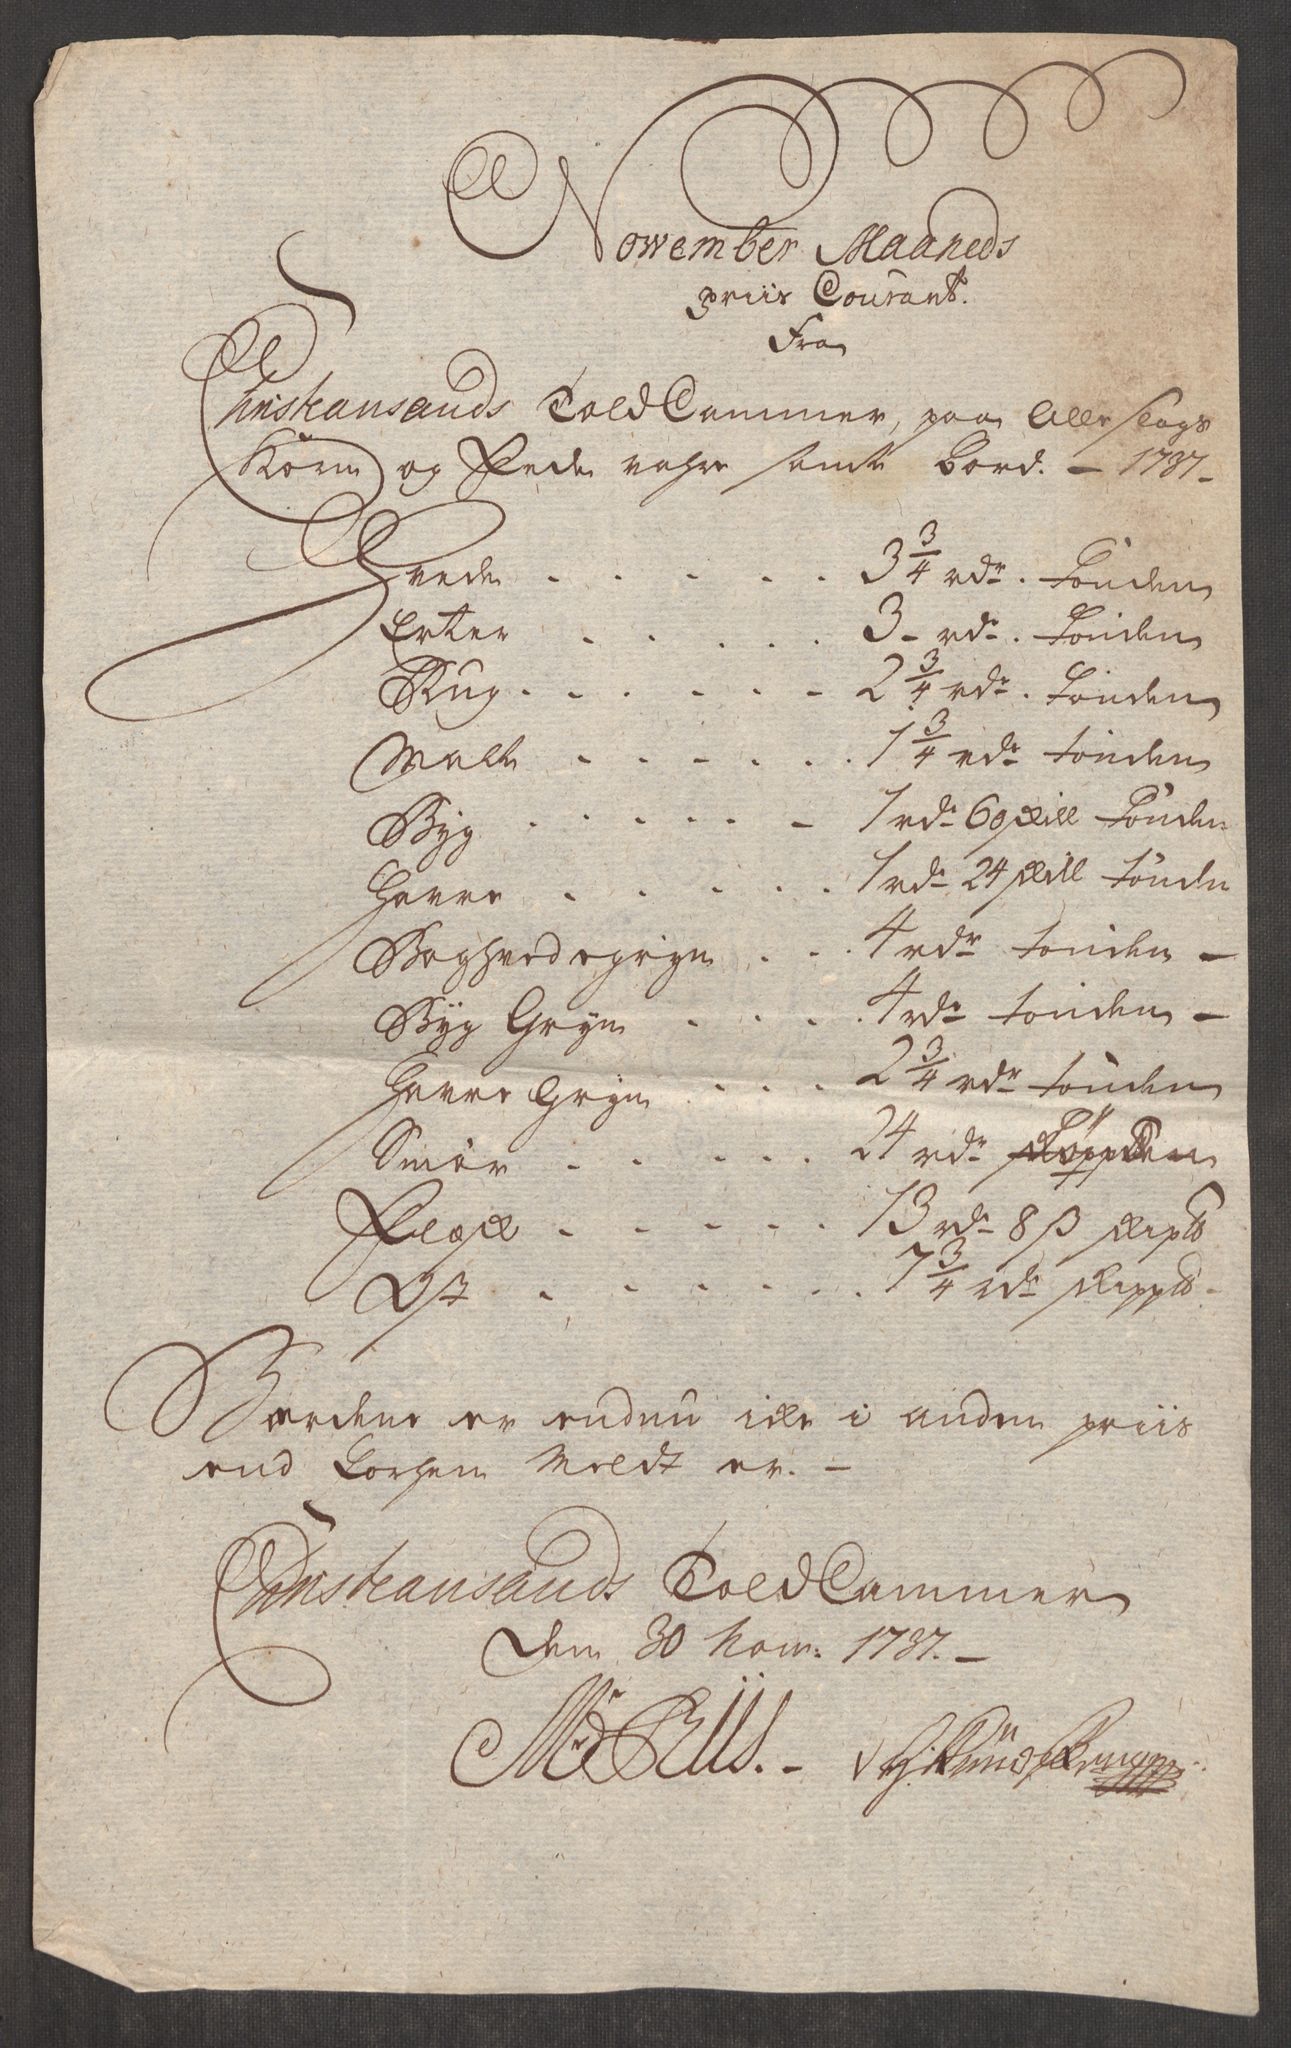 Nowember Maaneds
priis Courant.
Fra
Christiansands Told Cammer, paa Alle slags
Korn og Fede vahre samt Bord. — 1737 –
Hvede . . . . . 3 3/4 rdr. Tönden
Erter . . . . 3 – rdr. Tönden
Rug . . . . . – 2 3/4 rdr. Tönden
Malt . . . . . . 1 3/4 rdr tönden
Byg . . . . . – 1 rdr 60 skill Tönden
Havre . . . . . 1 rdr 24 skill tönden
Boghvedegryn . . . 4 rdr tönden –
Byg Gryn . . . . 4 rdr tönden –
Havre Gryn . . . 2 3/4 rdr tönden
Smör . . . . . 24 rdr
Flesk . . . . . 13 rdr 8 ß skipt
Ost . . . . . . 7 3/4 rdr skippt –
Bordene er endnu icke i anden priis
end forhen Meldt er. –
Christiansands Told Cammer
Den 30 Now: 1737. –